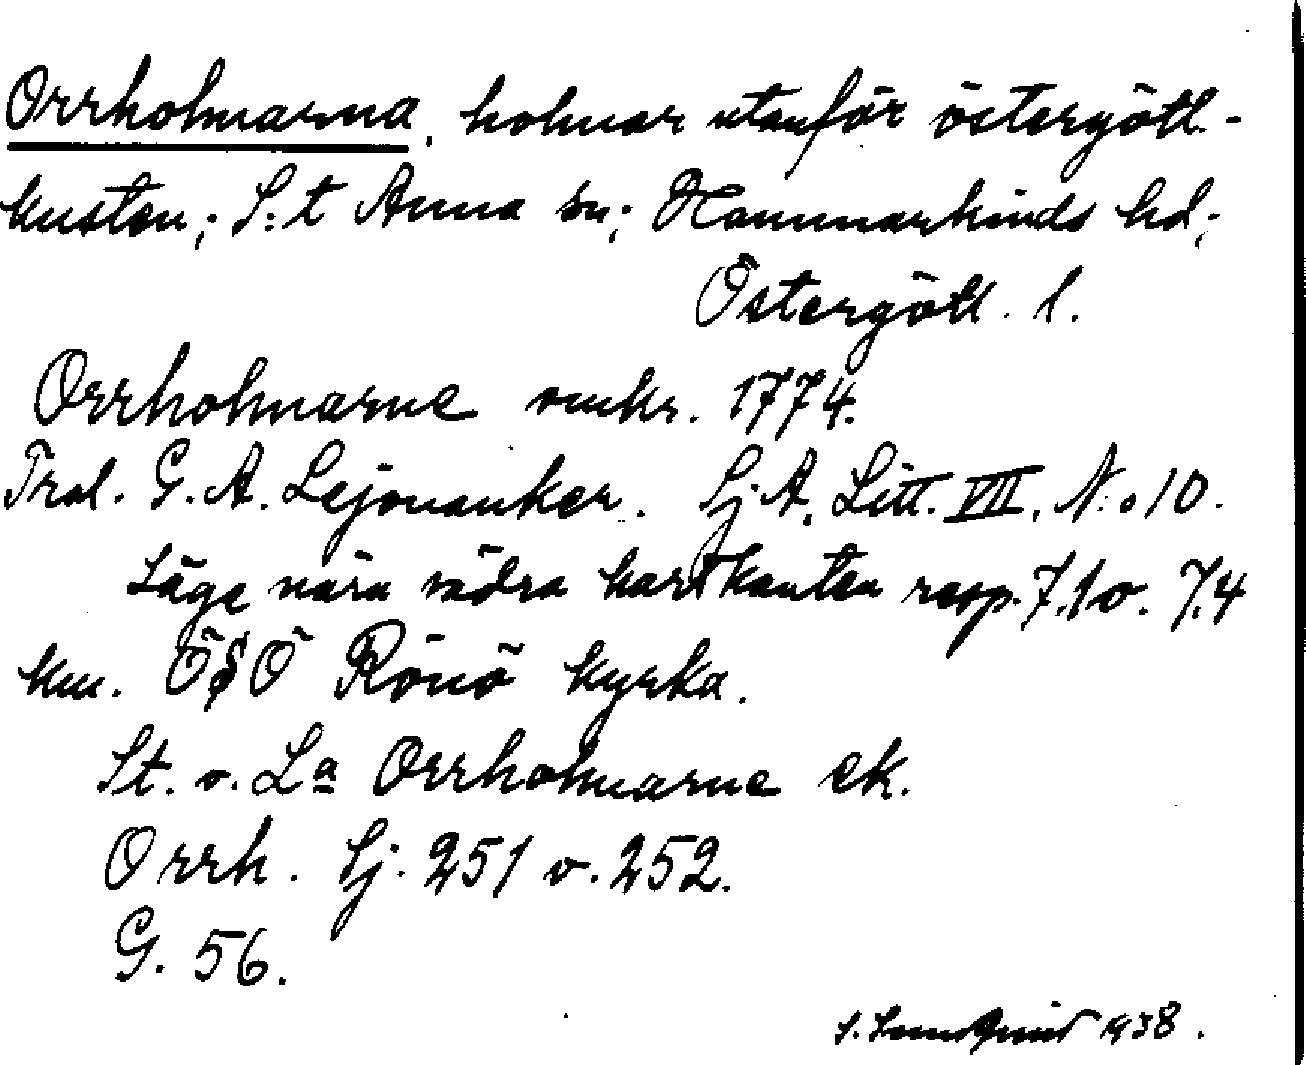 Orrholmarna, holmar utanför östergötl.-
kusten; S:t Anna sn; Hammarkinds hd;
Östergötl. l.
Orrholmarne omkr. 1774.
Tral. G. A. Lejonanker. Sj. A. Litt. VII. N:o 10.
Läge nära södra kartkanten resp. 7.1 o. 7.4
km. ÖSÖ Rönö kyrka.
St. o. La Orrholmarne ek.
Orrh. Sj. 251 o. 252.
G. 56.
S. Lundqvist 1938.